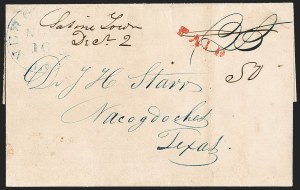 Sabine Town
Dect 2
PAID
50
Dr J H Starr
Nacogdoches
Texas